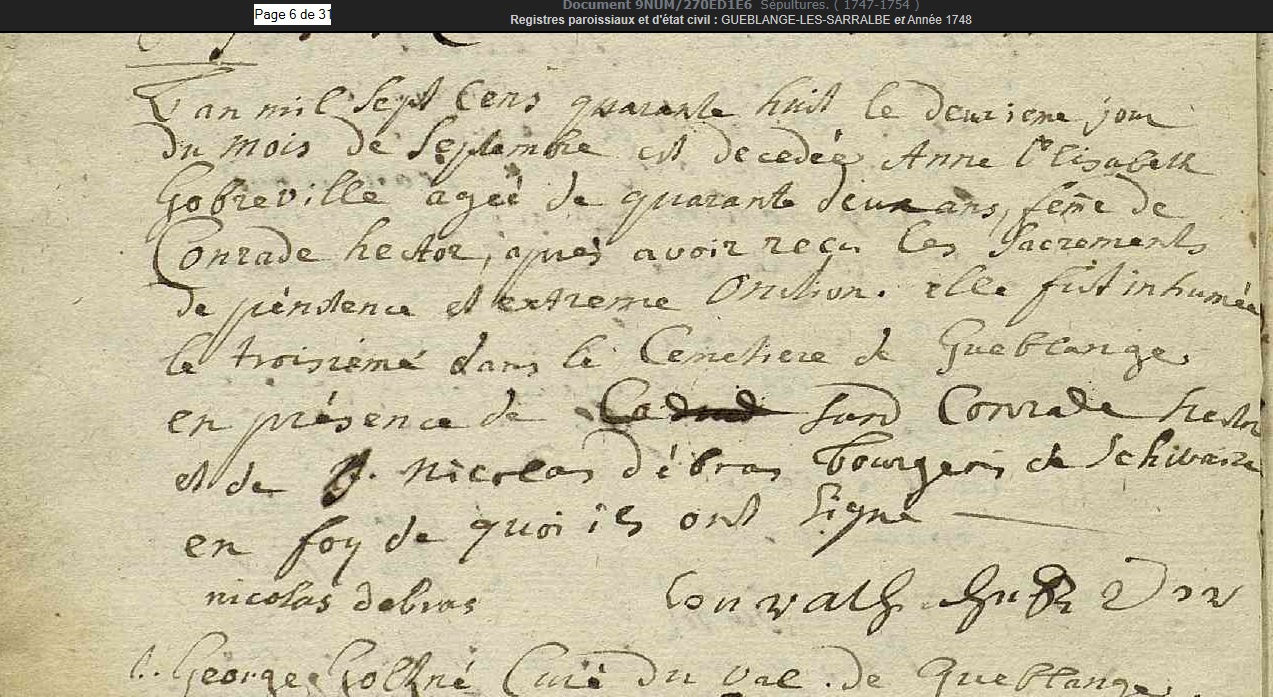 Document 9NUM/270ED1E6 Sépultures. ( 1747-1754 )
Page 6 de 31
Registres paroissiaux et d'état civil : GUEBLANGE-LES-SARRALBE et Année 1748
L'an mil sept cens quarante huit le deuxieme jour
du mois de Septembre est decedée Anne Elisabeth
Gobreville ageé de quarante deux ans, feme de
Conrade hector, aprés avoir reçu les Sacrements
de pénitence et extreme Onction. elle fut inhumée
le troisiéme dans le Cemetiere de Gueblange
en présence de sand Conrade hector
et de Nicolas débras bourgeois de Schweix
en foy de quoi ils ont signé
nicolas debras Conrath
George Curé du Val de Gueblange